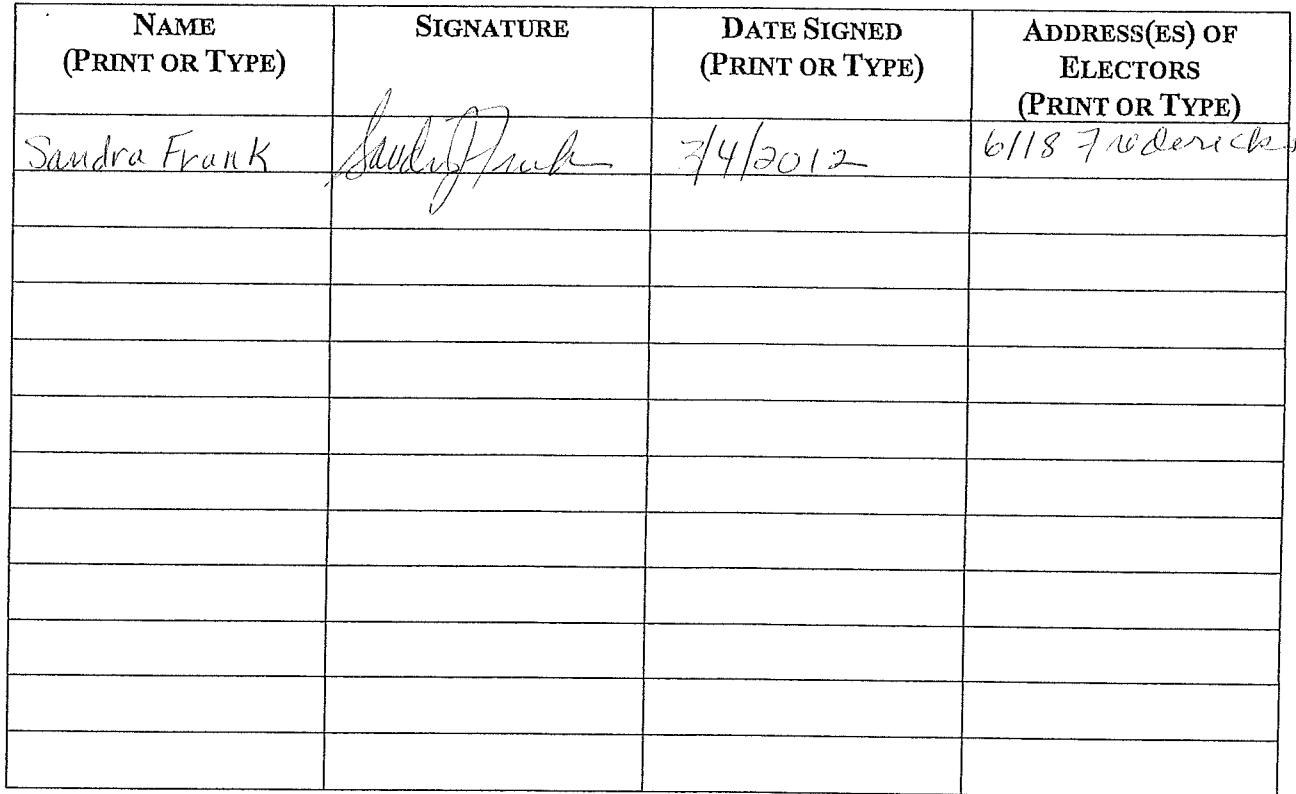 NAME
(PRINT OR TYPE)
SIGNATURE
DATE SIGNED
(PRINT OR TYPE)
ADDRESS(ES) OF
ELECTORS
(PRINT OR TYPE)
Sandra Frank 3/4/2012 6118 Fredericks